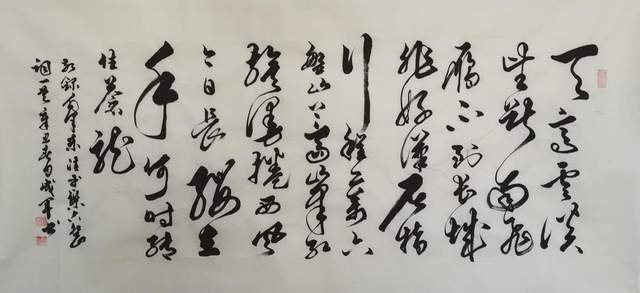 天高雲淡
望斷南飛
雁不到長城
非好漢屈指
行程二萬六
盤山上高峰紅
旗漫捲西風
今日長纓在
手何時縛
住蒼龍
錄毛澤東清平樂六盤山
詞一首辛丑成軍書